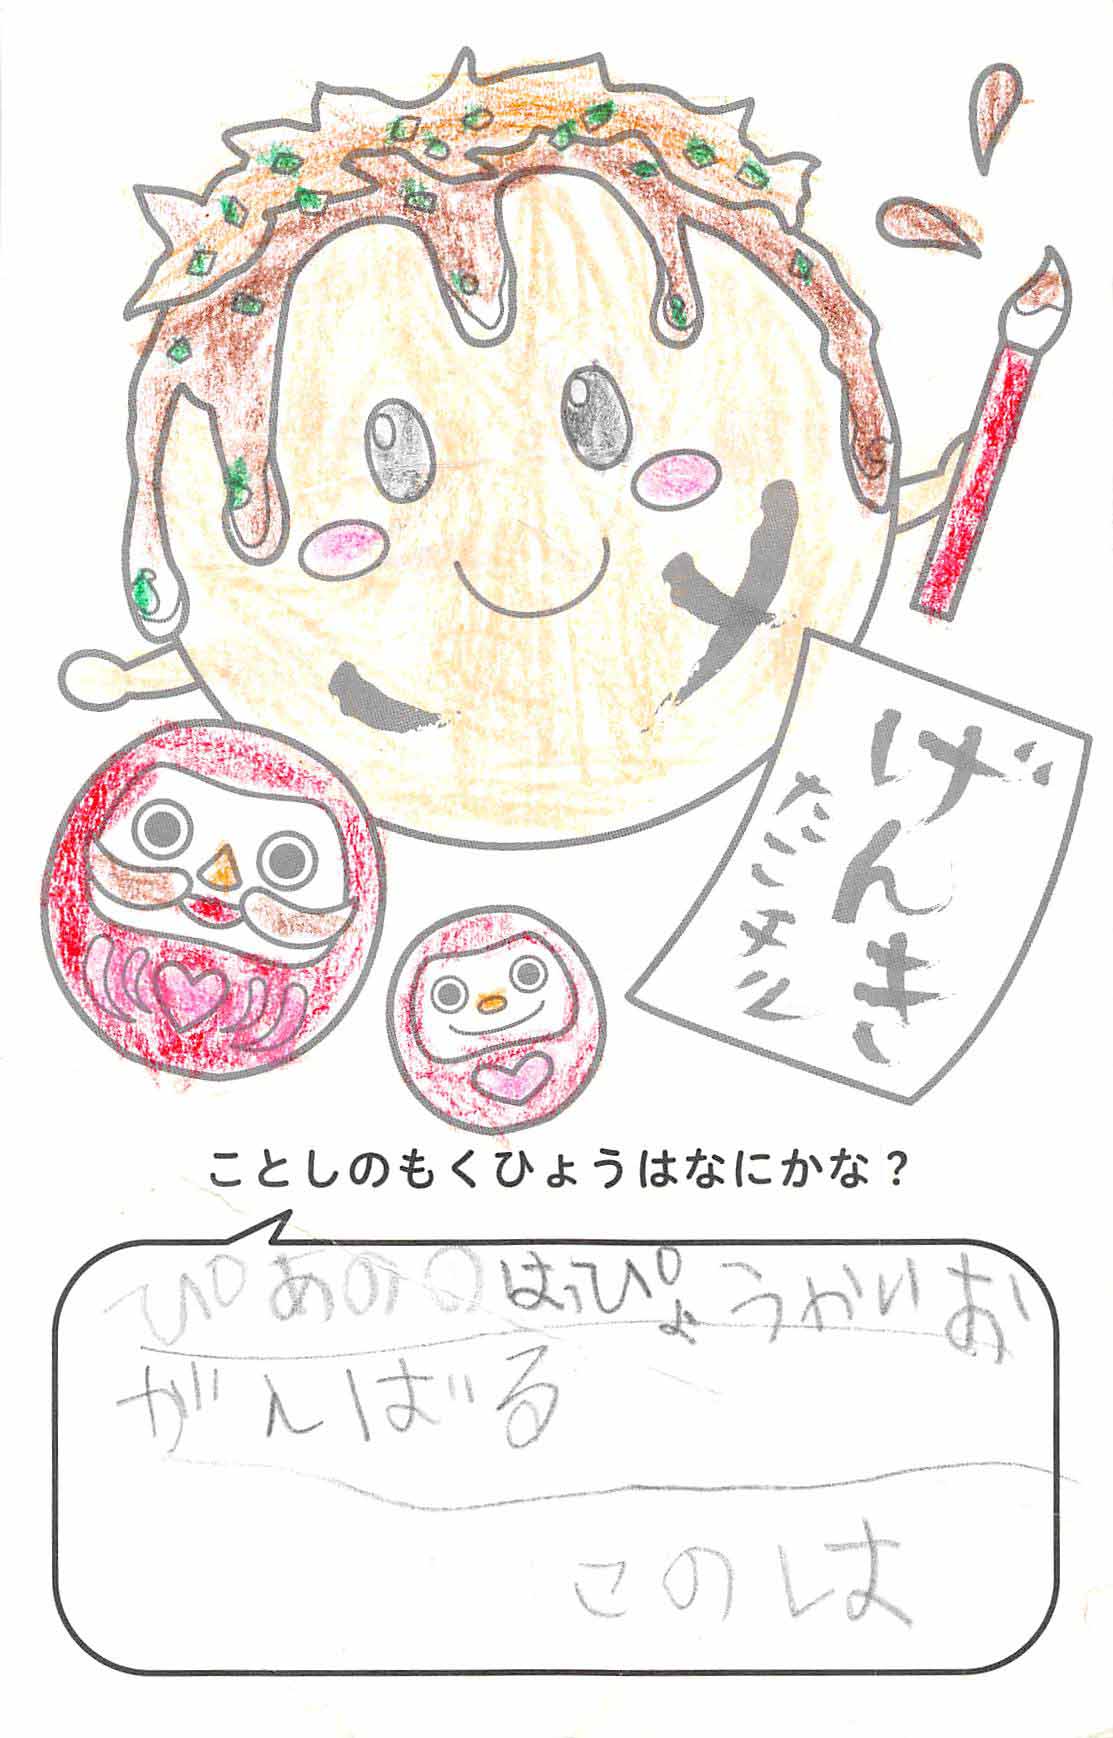 げんき
たこメル
ことしのもくひょうはなにかな？
ぴあののはっぴょうかいお
がんばる
このは